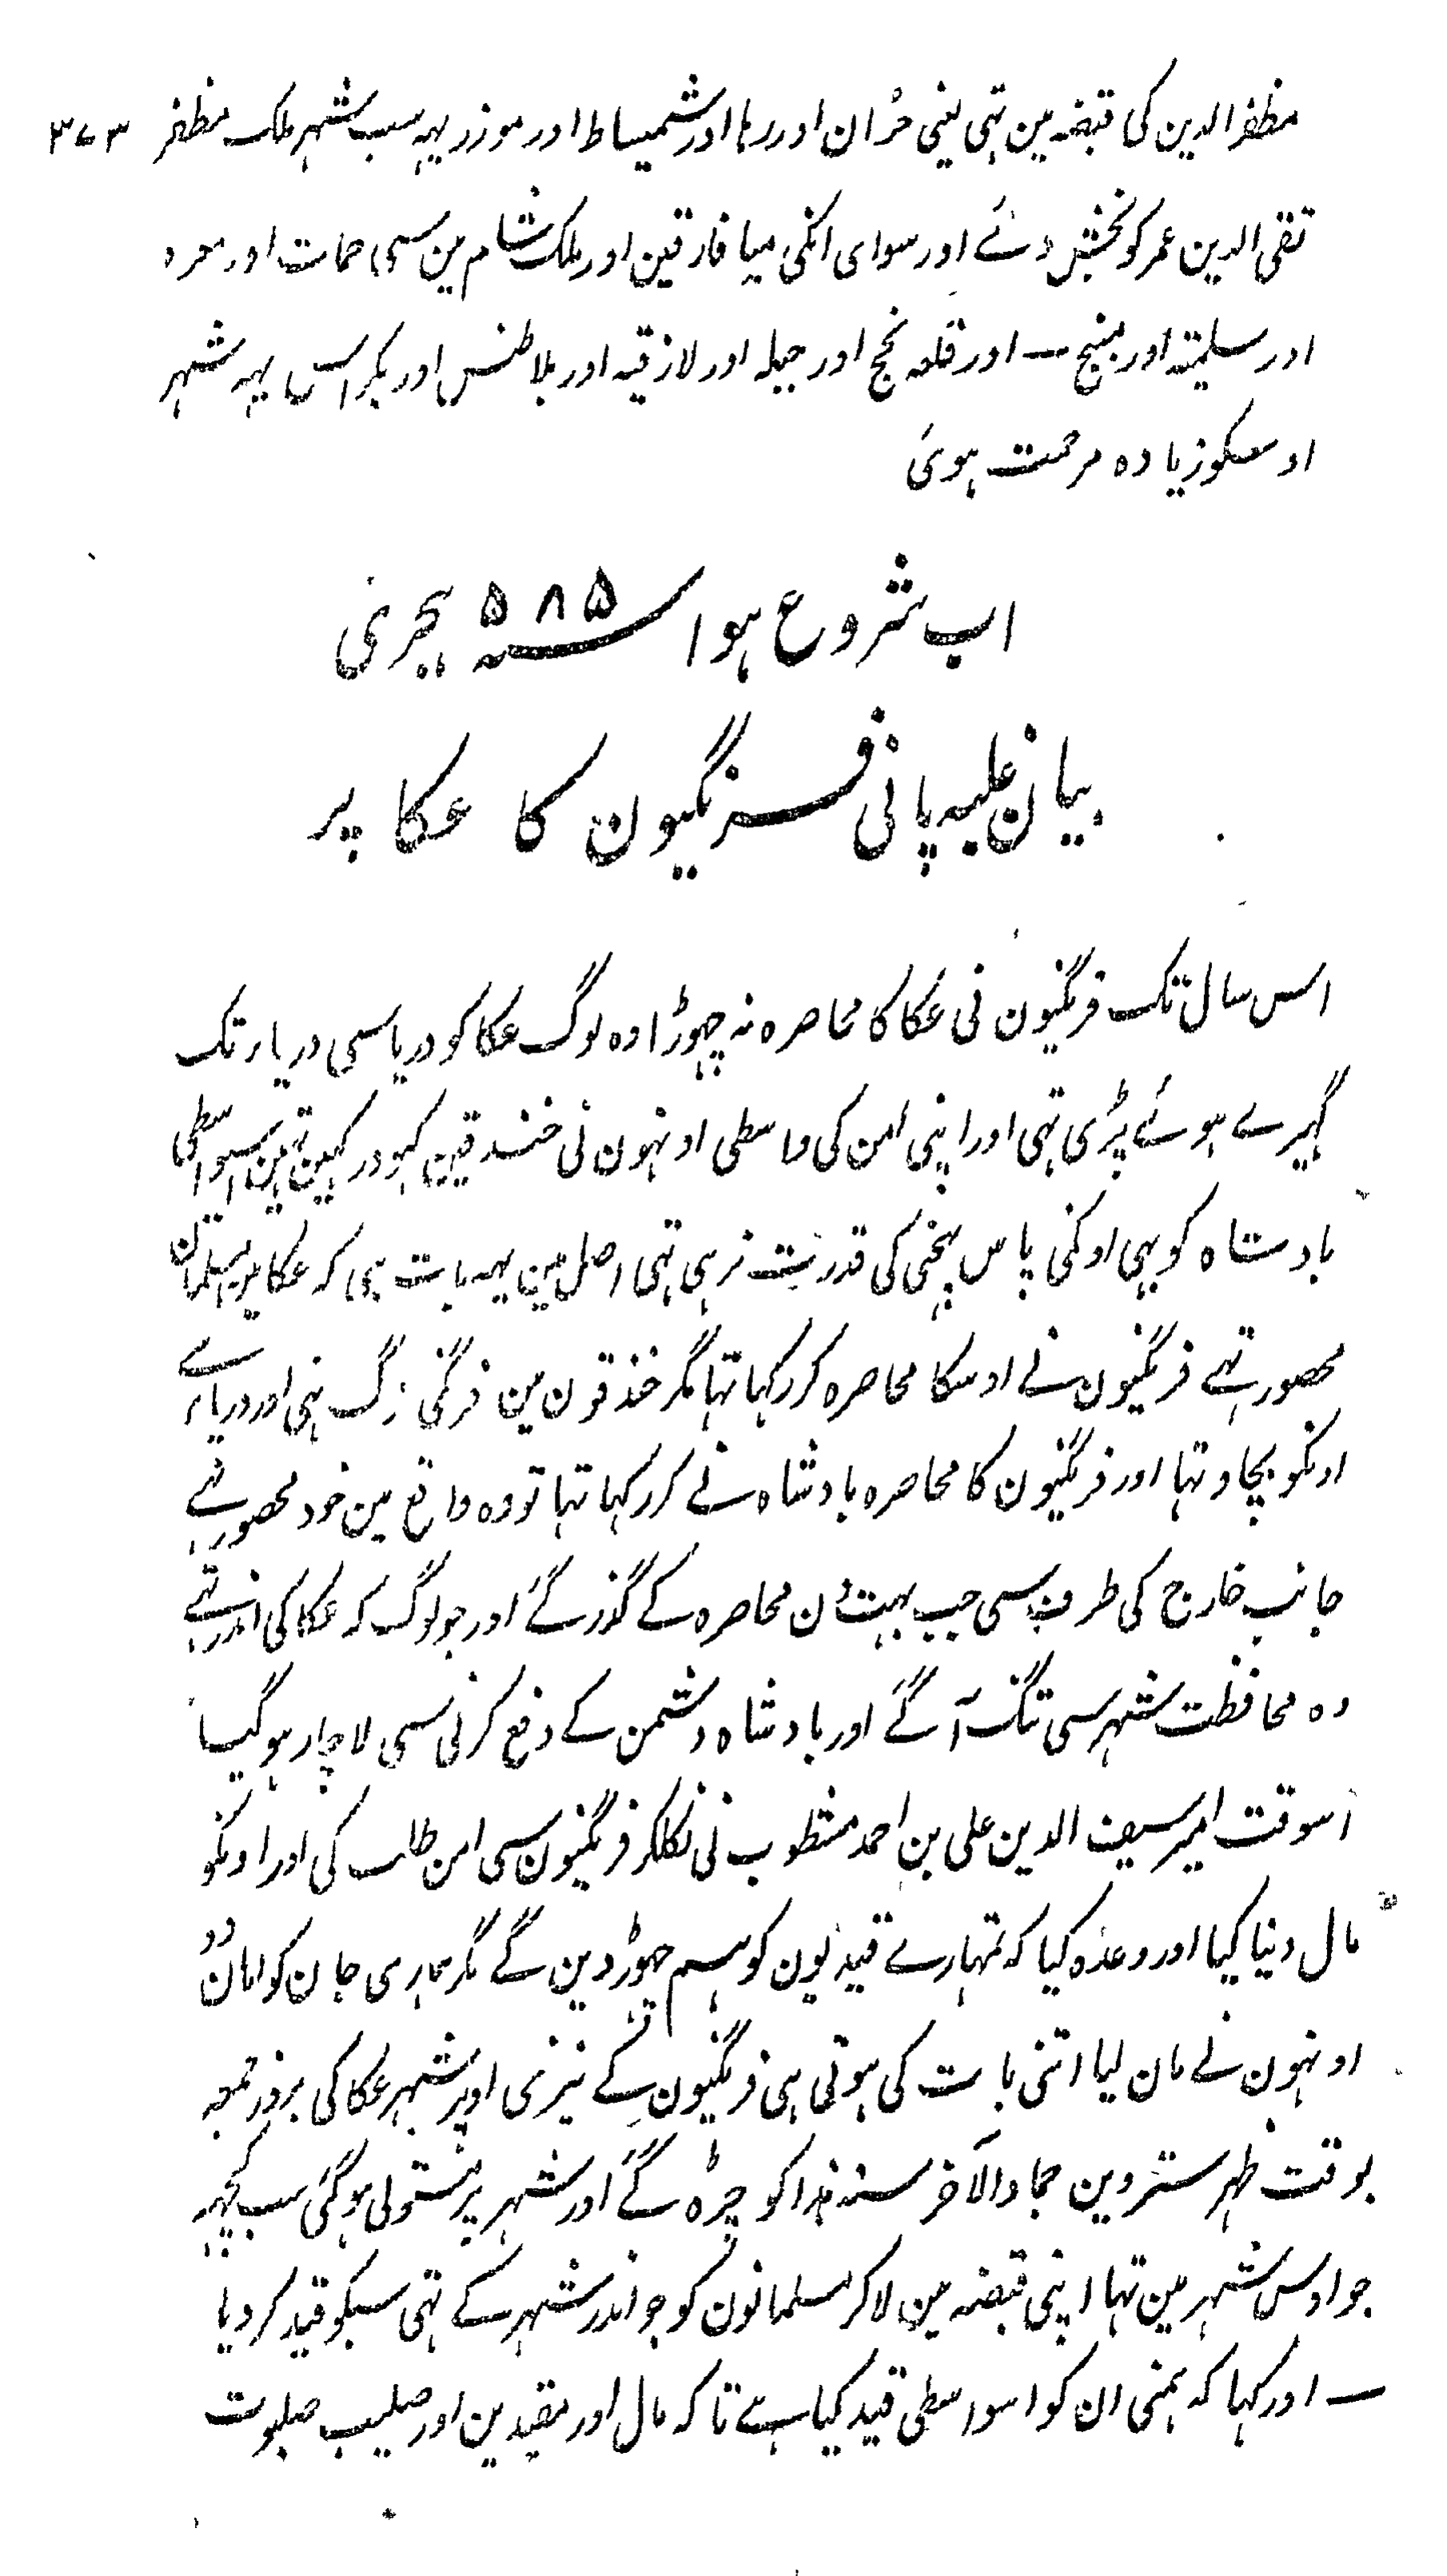 مظفر الدین کی قبضہ مین تہی یعنی حرّان اور رہا اور شمیساط اور موزر یہہ سب شہر ملک مظفر ۳۷۳
تقی الدین عمر کو بخش دئے اور سوای انکی میا فارقین اور ملک شام مین سی حمات اور معرہ
اور سلمیتہ اور منبج — اور قلعہ نجم اور جبلہ اور لاذقیہ اور بلاطنس اور بکراس یہہ شہر
اوسکو زیادہ مرحمت ہوئ
اب شروع ہوا سنہ ۵۸۵ ہجری
بیان غلبہ پانی فرنگیون کا عکا پر
اس سال تک فرنگیون نی عکا کا محاصرہ نہ چہوڑا وہ لوگ عکا کو دریا سی دریا تک
گہیرے ہوئے پڑی تہی اور اپنی امن کی واسطی اونہون نی خندقین کہود رکہین تہین اسواسطی
بادشاہ کو بہی اونکی پاس پہنچی کی قدرت نرہی تہی اصل مین یہہ بات ہی کہ عکا مین مسلمان
محصور تہے فرنگیون نے اوسکا محاصرہ کر رکہا تہا مگر خندقون مین فرنگی لوگ تہی اور دریا سے
اونکو بچاو تہا اور فرنگیون کا محاصرہ بادشاہ نے کر رکہا تہا تو وہ واقع مین خود محصور تہے
جانب خارج کی طرف سی جب بہت دن محاصرہ کے گذر گئے اور جو لوگ کہ عکا کی اندر تہے
وہ محافظت شہر سی تنگ آ گئے اور بادشاہ دشمن کے دفع کرنی سی لاچار ہو گیا
اسوقت امیر سیف الدین علی بن احمد مشطوب نی نکلکر فرنگیون سی امن طلب کی اور اونکو
مال دینا کیا اور وعدہ کیا کہ تمہارے قیدیون کو ہم چہوڑ دین گے مگر ہماری جان کو امان دو
اونہون نے مان لیا اتنی بات کی ہوتی ہی فرنگیون کے نیزی اوپر شہر عکا کی بروز جمعہ
بوقت ظہر سترھوین جماد الآخر سنہ ہذا کو چڑہ گئے اور شہر پر مستولی ہو گئی سب کچہہ
جو اوس شہر مین تہا اپنی قبضہ مین لا کر مسلمانون کو جو اندر شہر کے تہی سبکو قید کر دیا
— اور کہا کہ ہمنی ان کو اسواسطی قید کیا ہے تا کہ مال اور مقیدین اور صلیب صلبوت